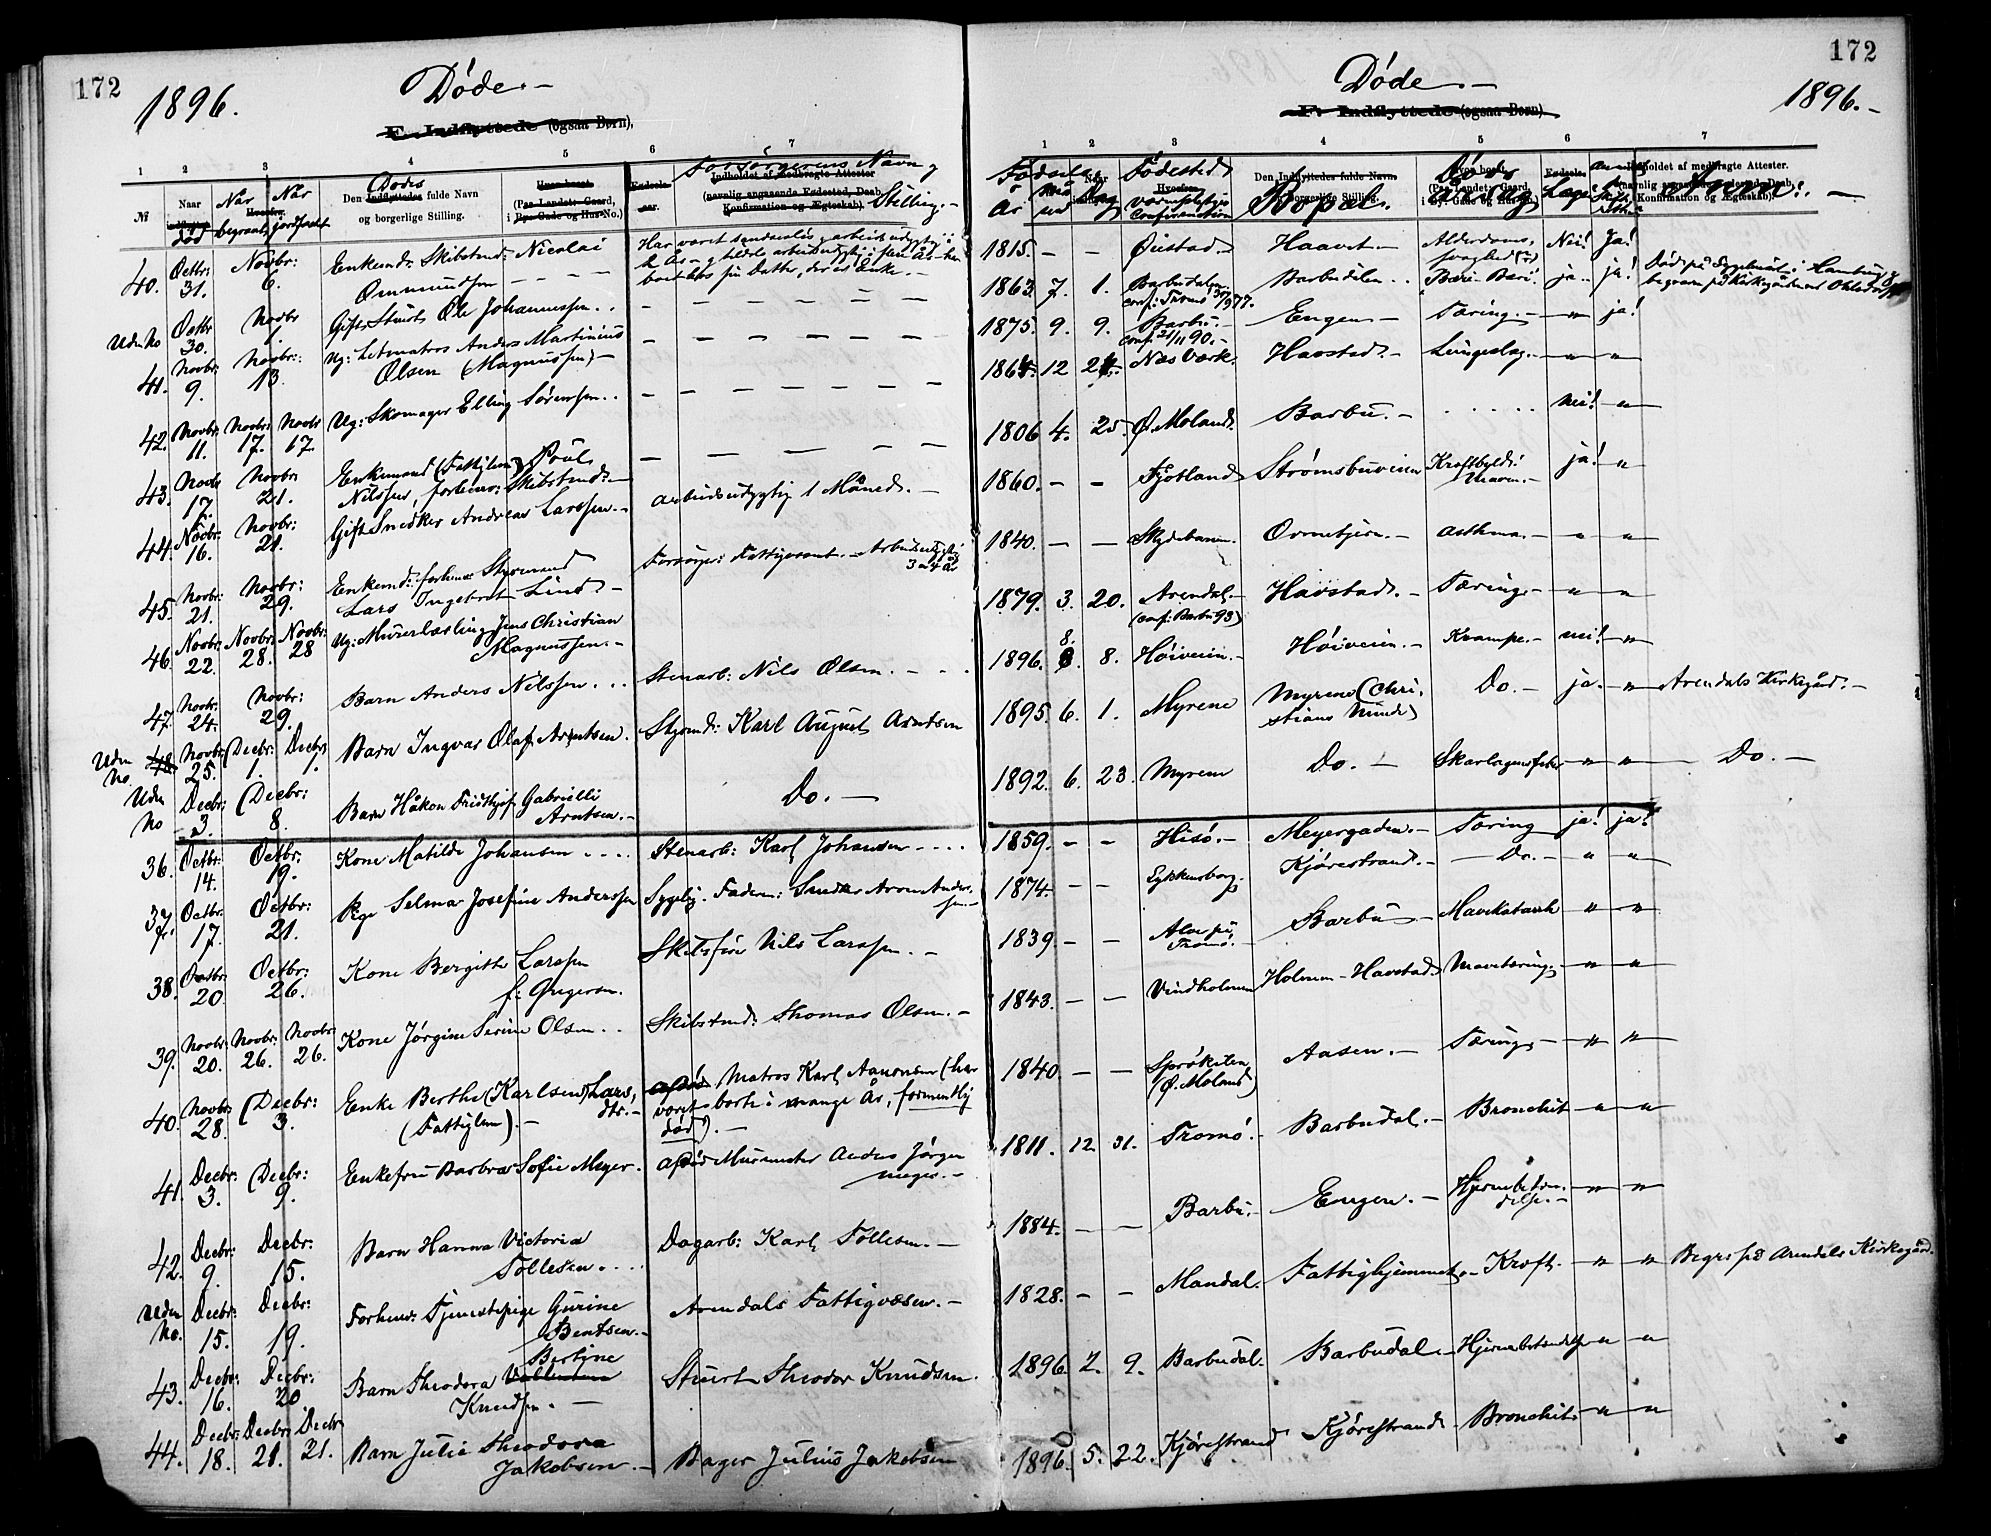 172
1896.
Døde.-
E. Indflyttede (ogsaa Børn),
1 2 3 4 5 6 7
Forsørgerens Navn og Stilling.-
№ Naar død Når begravet, Når jordfæstet
Dødes
Den Indflyttedes fulde Navn
og borgerlige Stilling.
Indholdet af medbragte Attester
(navnlig angaaende Fødested, Daab,
Konfirmation og Ægteskab).
40. Octbr: 31. Novbr: 6. Enkemd: Skibstmd: Nicolai
Ommundsen - - - -
Uden No Octbr 30. Novbr Gift Stuert Ole Johannessen . .
41. Novbr: 9. Novbr: 13. Ug: Letmatros Anders Martinius
Olsen (Magnussen) -
42. Novbr: 11. Novbr: 17. Novbr 17. Ug: Skomager Elling Sørensen . .
43. Novbr 17. Novbr 21. Enkemand (Fattiglem) Poul
Nilssen, forhenv: Skibstmd: -
44. Novbr: 16. Novbr: 21. Gift Snedker Andreas Larssen. - arbeidsudygtig 1 Måned. -
45. Novbr: 21. Novbr: 29. Enkemd: forhenv: Styrmand
Lars Ingebret Lind - Forsørger: Fattigvæsenet. - Arbeidsudygtig
3 a 4 År
46. Novbr: 22. Novbr: 28. Novbr: 28 Ug: Murerlærling Jens Christian
Magnussen. -
47. Novbr: 24. Novbr: 29. Barn Anders Nilssen . . . Stenarb: Nils Olsen. -
Uden No 48 Novbr: 25. Decbr: 1. Decbr 1. Barn Ingvar Olaf Arntsen. Styrmd: Karl August Arntsen
Uden No Decbr: 3. Decbr: 8. Barn Håkon Fridthjof Gabrielli
Arntsen. - Do. -
36. Octbr: 14. Octbr. 19. Kone Matilde Johansen . . . . Stenarb: Karl Johansen - . . .
37. Octbr: 17. Octbr: 21. Pige Selma Josefine Anderssen Sygelig. Faderen: Snedker Aron Anders-
sen -
38. Octbr: 20 Octbr: 26. Kone Bergithe Larssen
f: Gregersn. Skibsfører Nils Larssen. -
39. Novbr: 20. Novbr: 26. Novbr: 26. Kone Jørgine Serine Olsen . . Skibstmd: Thomas Olsen. -
40. Novbr: 28. Decbr: 3. Enke Berthe (Karlsen) Lars,
dtr. -
(Fattiglem). - Matros Karl Aanonsen (har
været borte i mange År, formentlig
død). -
41. Decbr: 3. Decbr: 9. Enkefru Barbra Sofie Meyer. afdød Murmester Anders Jørgen
Meyer. -
42. Decbr: 9. Decbr: 15. Barn Hanna Victoria
Tollesen . . . Dagarb: Karl Tollesen. -
Uden No. Decbr: 15. Decbr: 19. Forhenv: Tjenestepige Gurine
Bentsen. - Arendals Fattigvæsen. -
43. Decbr: 16. Decbr: 20. Bertine
Barn Theodora
Knudsen. - Stuert Theodor Knudsen.
44. Decbr: 18. Decbr: 21. Decbr 21. Barn Julie Theodora
Jakobsen. - Bager Julius Jakobsen
172
1896.-
Døde.-
E. Indflyttede (ogsaa Børn)
1 2 3 4 5 6 7
Fødsels År Måned Dag Fødested Bopæl. Dødsårsag Anm: -
1815. - - Øiestad Haavet - Alderdoms,
svaghed Nei! Ja!
1863. 7. 1. Barbudalen
conf: Tromø Barbudalen . . Beri-Beri. ja . . ja! Død på Sygehuset i Hamburg &
begravet på Kirkegården
1875. 9. 9. Barbu. -
conf: 21/11 90. - Engene - Tæring. - " ja!
1864. 12 Næs Værk. Havstad. - Lungeslag. - " "
1806 4. 25. Ø. Moland. Barbu. - . . . . . nei! "
1860. - - Fjotland Strømsbuveien Kræftbyld i
Maven. - ja! "
1840. - - Skydebanen. Ormetjern. - asthma. - " "
1879. 3. 20. Arendal. -
(conf: Barbu 93) Havstad. - Tæring. - " "
1896. 8. 8. Høiveien. - Høiveien. - Krampe. - nei! "
1895. 6. 1. Myrene Myrene (Chri,
stians Minde) Do. - ja. - " Arendals Kirkegård. -
1892. 6. 23. Myrene Do. - Skarlagensfeber " " Do. -
1859. - - Hisø. - Meyergaden. - Tæring ja! ja!
1874. - - Lykkensborg. Kjørestrand. - - Do. - " "
1839. - - Alve på
Tromø. - Barbu - Mavekatarrh " "
1843. - - Vindholmen Holmen - Havstad Mavetæring. " "
1840. - -
(Ø. Moland) Aasen. - Tæring. - " "
1811. 12 31. Tromø. - Barbudal. - Bronchit " "
1884. - - Barbu. - Engene. - Hjernebetæn-
delse. - " "
1828. - - Mandal. Fattighjemmet. - Kræft. - " " Begr: på Arendals Kirkegård.
1896. 2. 9. Barbudal. Barbudal. - Hjernebetændelse " "
1896. 5. 22. Kjørestrand Kjørestrand - Bronchit " "